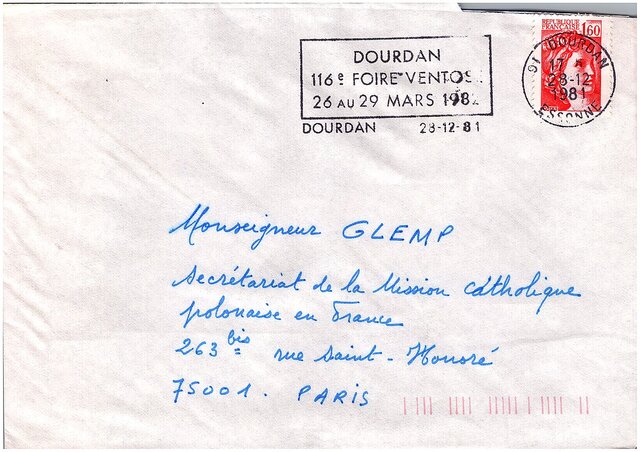 RÉPUBLIQUE
FRANÇAISE 1,60
DOURDAN
116e FOIRE VENTOSE
26 AU 29 MARS 1982
DOURDAN 28-12-81
91 DOURDAN
17 *
28-12
1981
ESSONNE
Monseigneur GLEMP
Secrétariat de la Mission Catholique
polonaise en France
263 bis rue Saint-Honoré
75001. PARIS